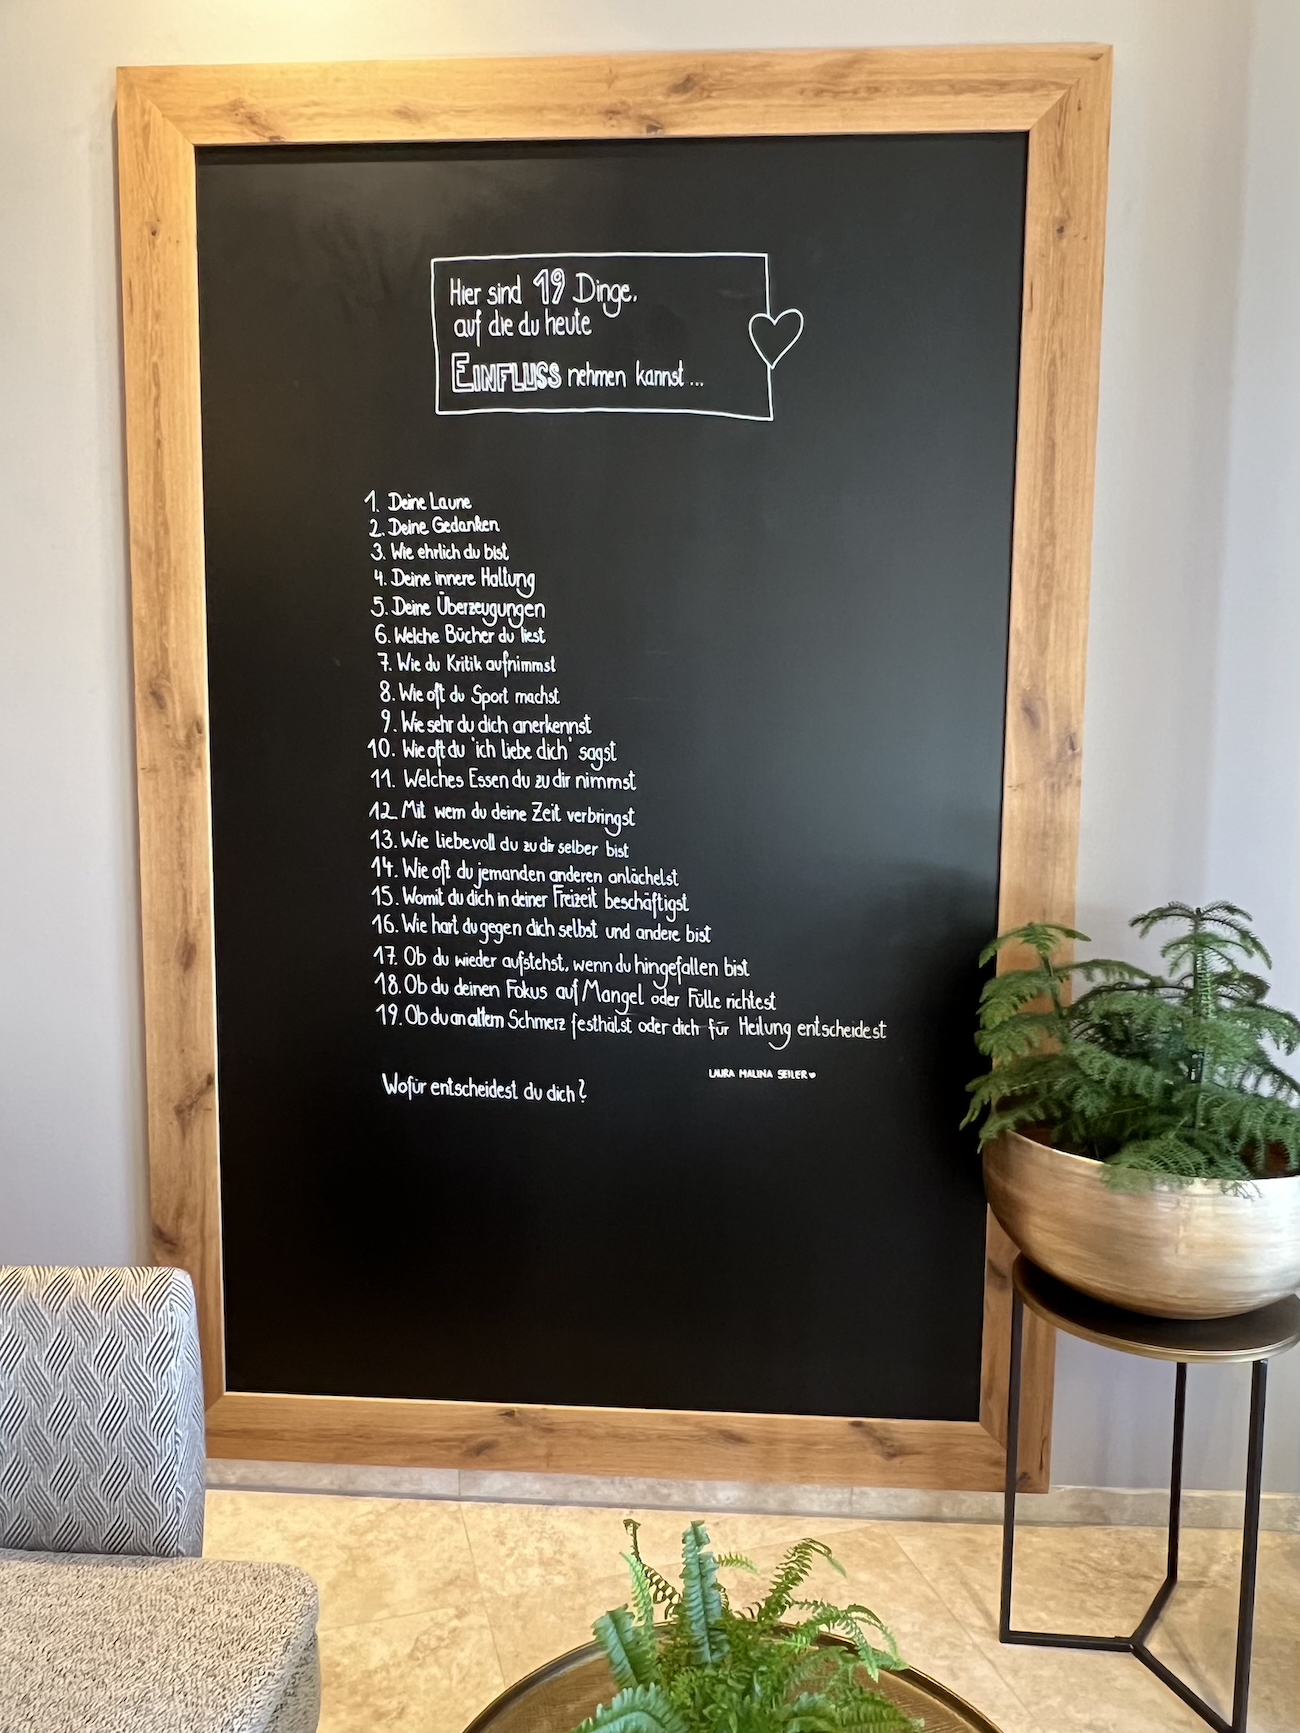 Hier sind 19 Dinge,
auf die du heute
EINFLUSS nehmen kannst ...
1. Deine Laune
2. Deine Gedanken
3. Wie ehrlich du bist
4. Deine innere Haltung
5. Deine Überzeugungen
6. Welche Bücher du liest
7. Wie du Kritik aufnimmst
8. Wie oft du Sport machst
9. Wie sehr du dich anerkennst
10. Wie oft du 'ich liebe dich' sagst
11. Welches Essen du zu dir nimmst
12. Mit wem du deine Zeit verbringst
13. Wie liebevoll du zu dir selber bist
14. Wie oft du jemanden anderen anlächelst
15. Womit du dich in deiner Freizeit beschäftigst
16. Wie hart du gegen dich selbst und andere bist
17. Ob du wieder aufstehst, wenn du hingefallen bist
18. Ob du deinen Fokus auf Mangel oder Fülle richtest
19. Ob du an altem Schmerz festhälst oder dich für Heilung entscheidest
LAURA MALINA SEILER ♥
Wofür entscheidest du dich?